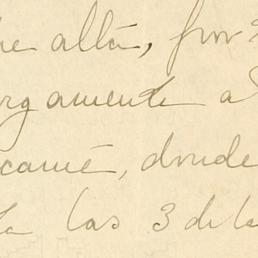 me allá, por
rgamente a
came, donde
la las 3 de la